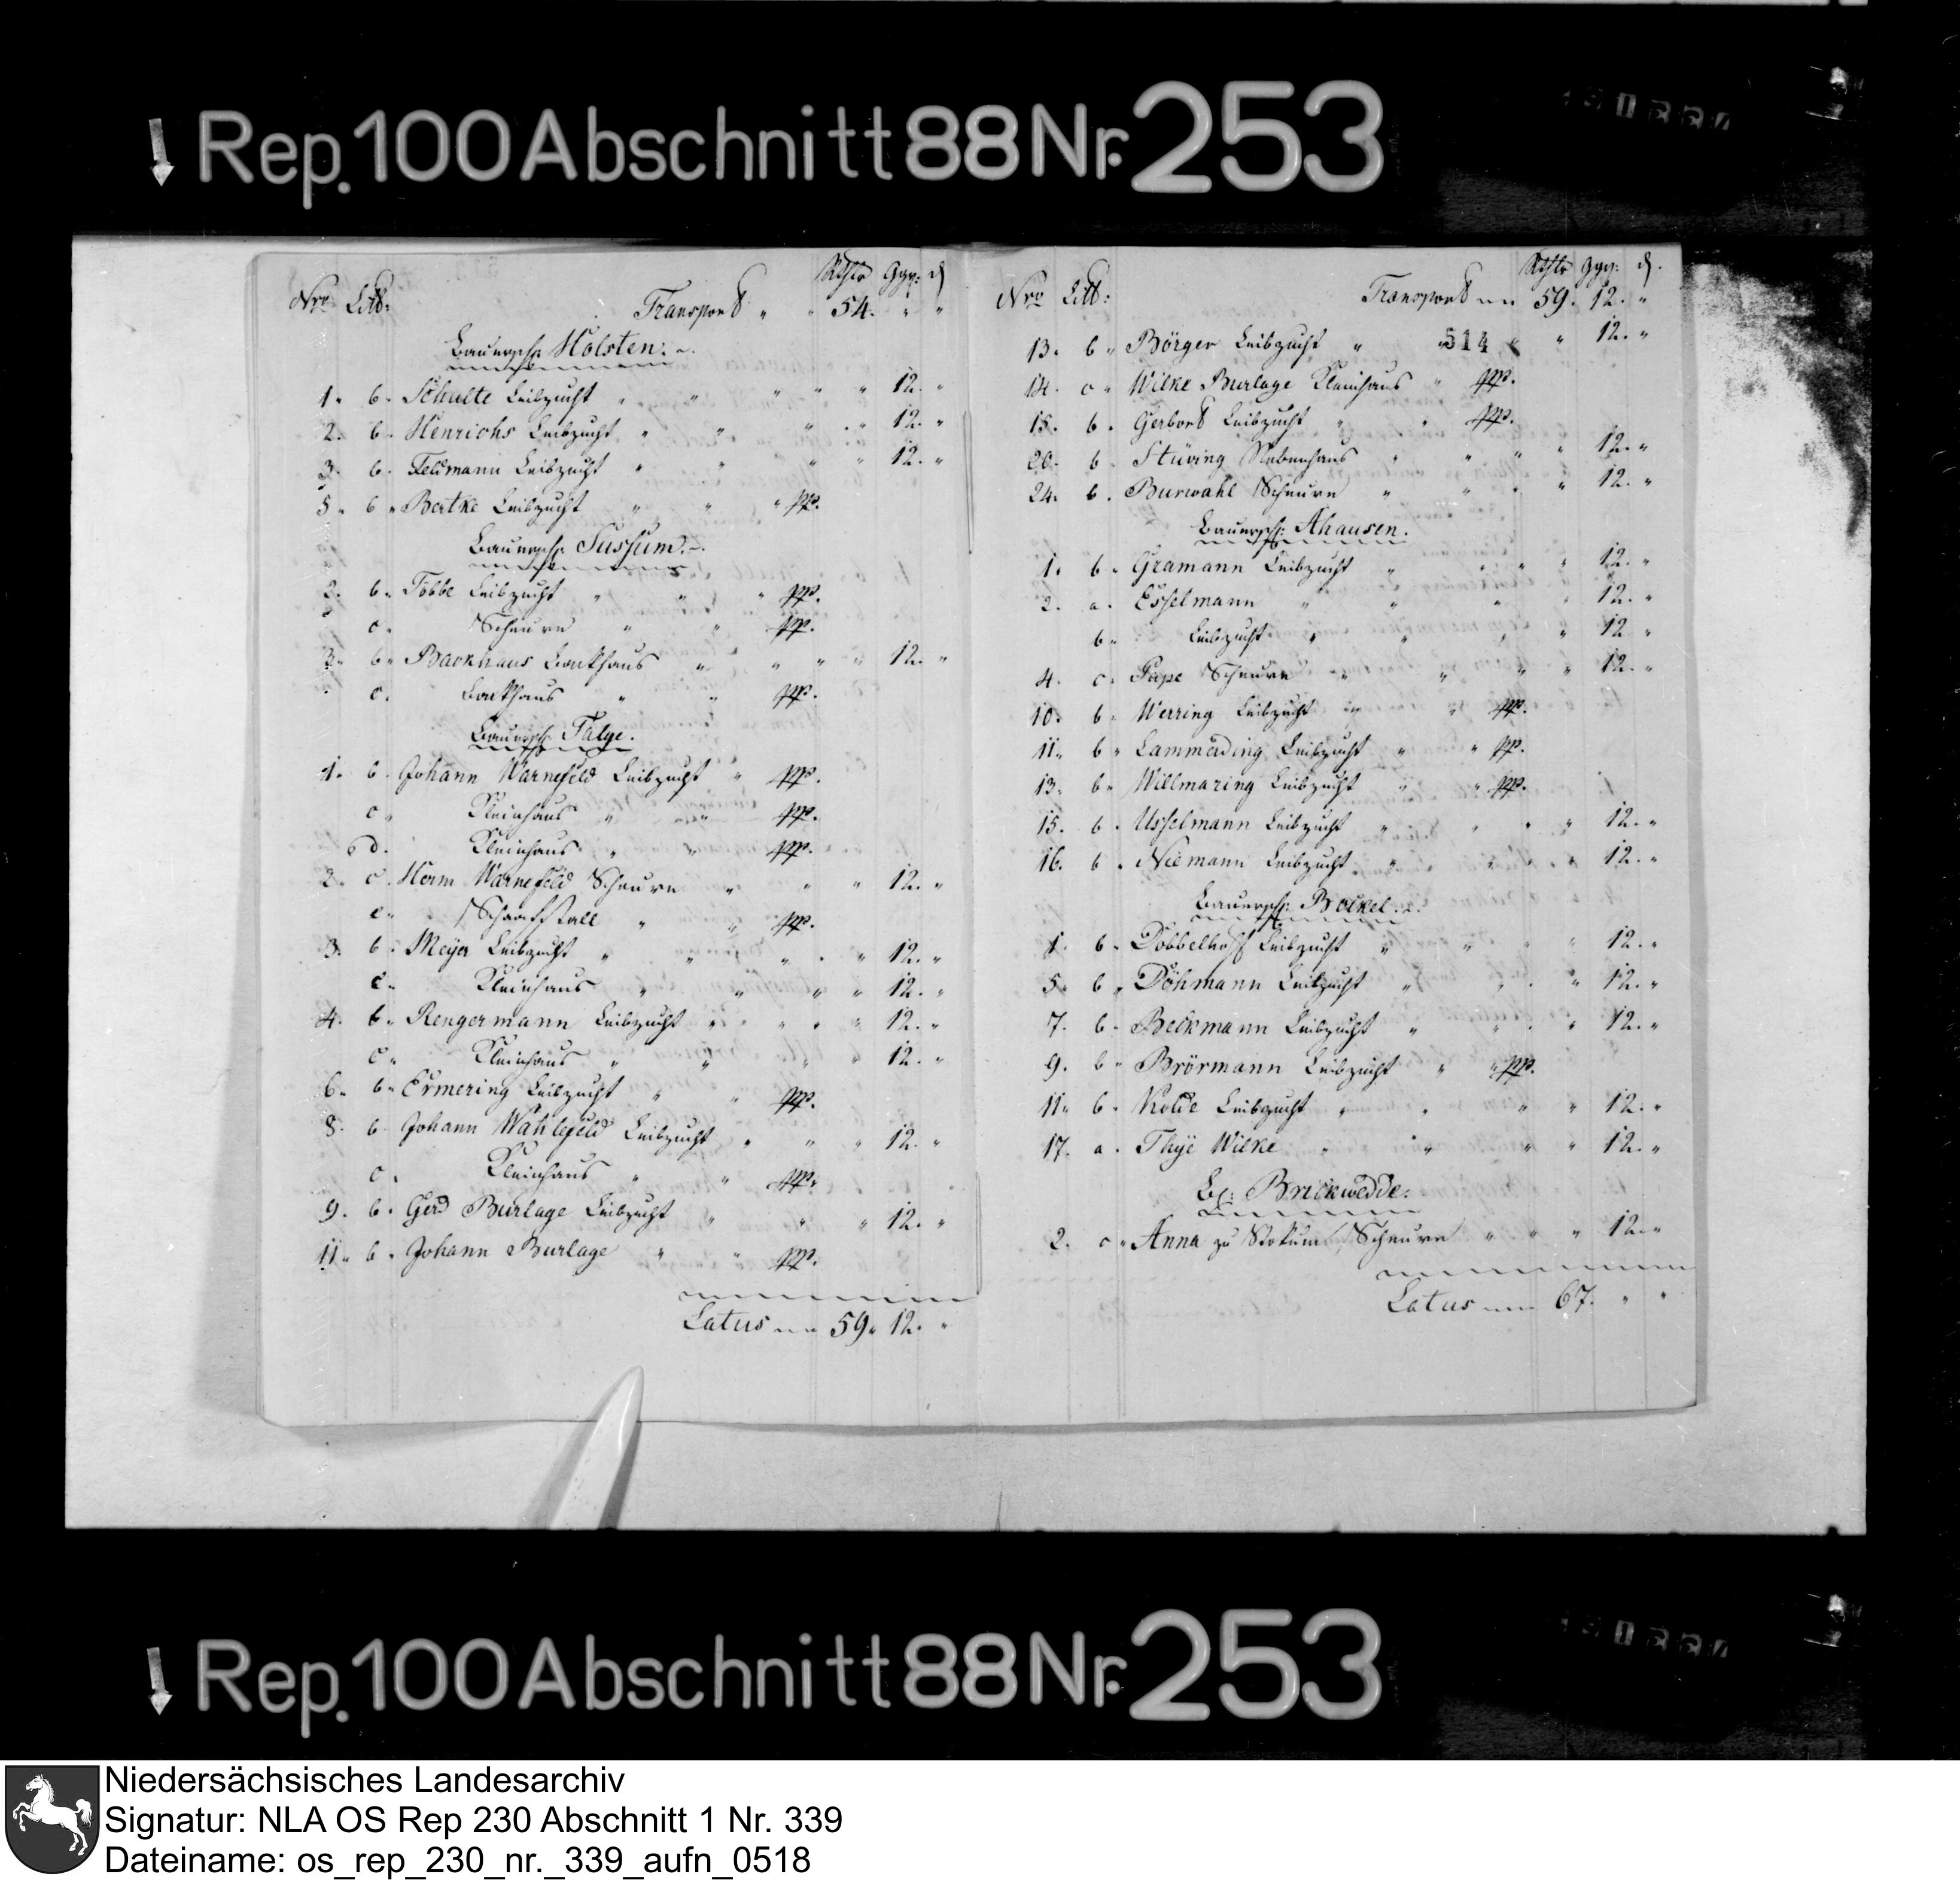 Rep. 100 Abschnitt 88 Nr. 253
Rthlr Ggr: d
Nro Litt:
Transport " " 54. " "
Bauersch: Holsten.
1. b. Schulte Leibzucht " " " " " 12. "
2. b. Henrichs Leibzucht " " " " 12. "
3. b. Feldmann Leibzucht " " " " 12. "
5. b. Bertke Leibzucht " " " ppp.
Bauersch: Sussum.
2. b. Többe Leibzucht " " " ppp.
c. Scheure " " ppp.
3. b. Backhaus Backhaus " " " " 12. "
c. Backhaus " " ppp.
Bauersch: Talge.
1. b. Johann Warnefeld Leibzucht " ppp.
c. Kleinhaus " " ppp.
d. Kleinhaus " " ppp.
2. c. Herm Warnefeld Scheure " " " 12. "
e. Schaafstall " " ppp.
3. b. Meyer Leibzucht " " " " " 12. "
c. Kleinhaus " " " " 12. "
4. b. Rengermann Leibzucht " " " " " 12. "
c. Kleinhaus " " " " 12. "
6. b. Ermering Leibzucht " " ppp.
8. b. Johann Wahlefeld Leibzucht " " " 12. "
c. Kleinhaus " " ppp.
9. b. Gerd Burlage Leibzucht " " " 12. "
11. b. Johann Burlage " " ppp.
Latus 59. 12. "
Rthlr Ggr: d.
Nro Litt:
Transport 59. 12. "
13. b. Börger Leibzucht " 514 " " 12. "
14. c. Wilke Burlage Kleinhaus " ppp.
15. b. Gerbert Leibzucht " " ppp.
20. b. Stüving Nebenhaus " " " " 12. "
24. b. Burwahl Scheure " " " " 12. "
Bauersch: Ahausen.
1. b. Gramann Leibzucht " " " " 12. "
2. a. Esselmann " " " " 12. "
b. Leibzucht " " " " 12 "
4. c. Pape Scheure " " " " 12. "
10. b. Werring Leibzucht " " ppp.
11. b. Lammerding Leibzucht " " ppp.
13. b. Willmaring Leibzucht " " ppp.
15. b. Usselmann Leibzucht " " " " 12. "
16. b. Niemann Leibzucht " " " " 12. "
Bauersch: Bockel.
1. b. Döbbelhoff Leibzucht " " " " 12. "
5. b. Döhmann Leibzucht " " " " 12. "
7. b. Beckmann Leibzucht " " " " 12. "
9. b. Brörmann Leibzucht " " ppp.
11. b. Kolde Leibzucht " " " " 12. "
17. a. Thye Wilke " " " " 12. "
Bs: Brickwedde.
2. c. Anna zu Stokum Scheure " " " 12. "
Latus 67. " "
Rep. 100 Abschnitt 88 Nr. 253
Niedersächsisches Landesarchiv
Signatur: NLA OS Rep 230 Abschnitt 1 Nr. 339
Dateiname: os_rep_230_nr._339_aufn_0518